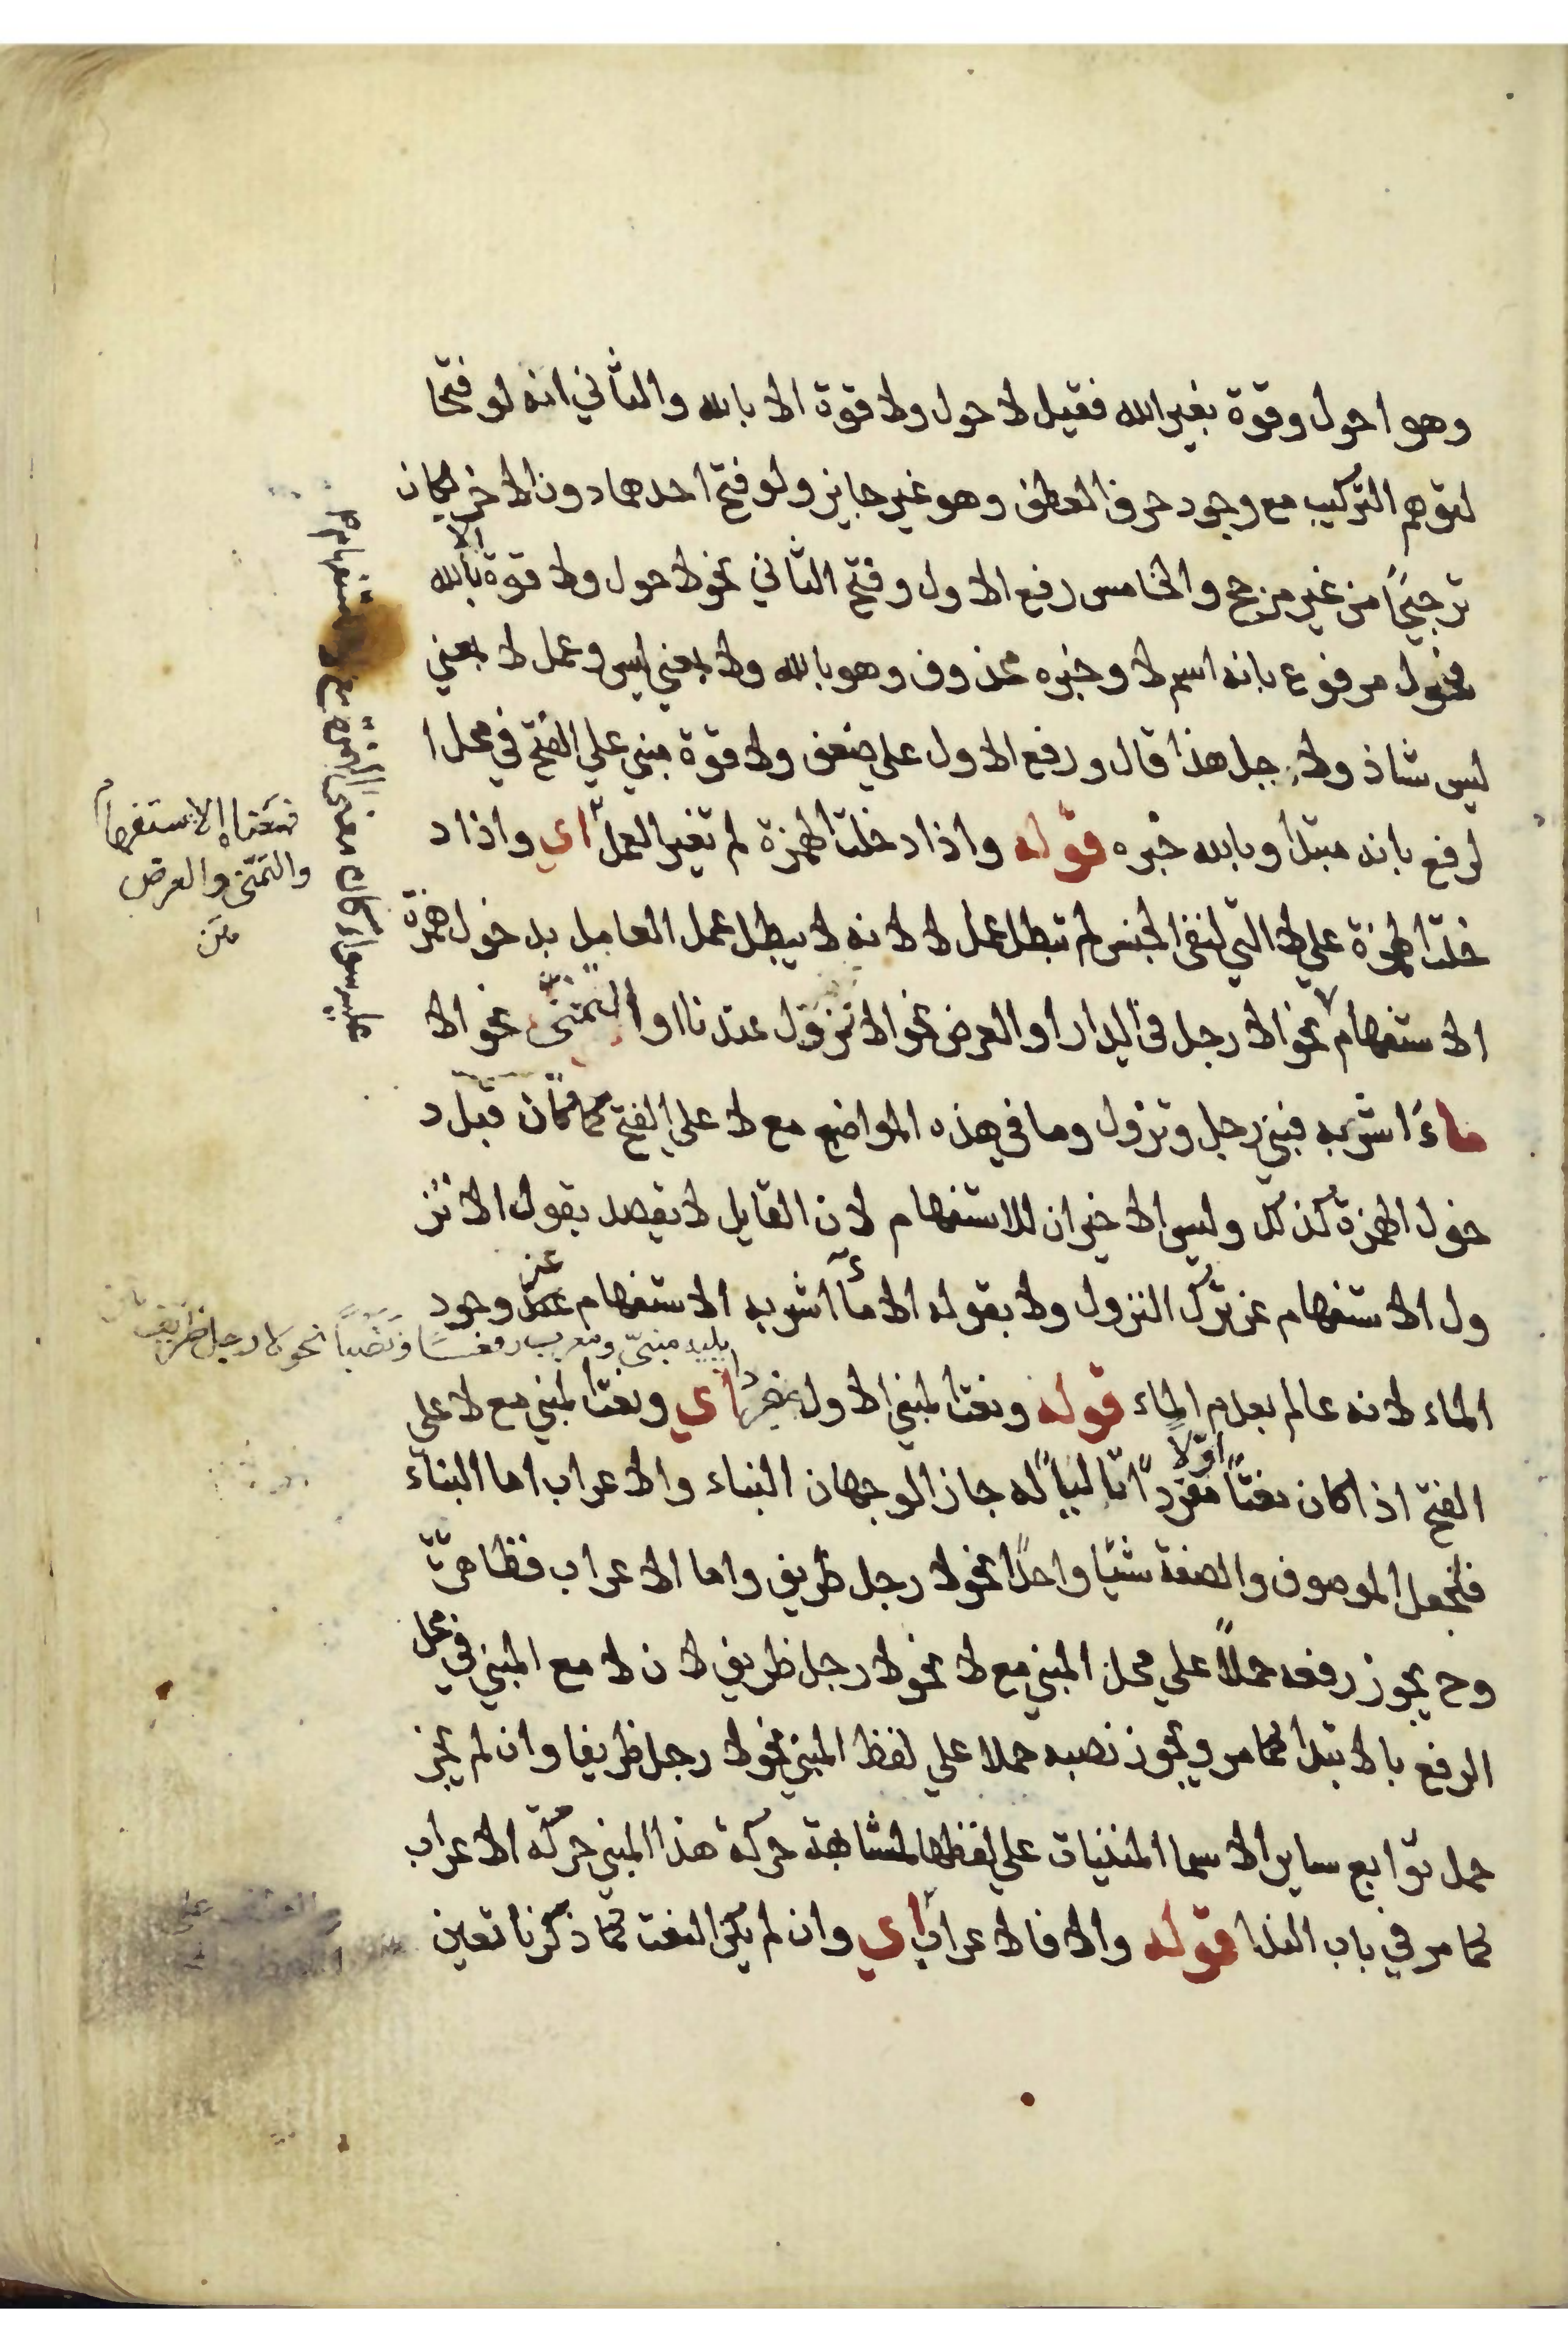 وهو احول وقوة بغير الله فقيل لا حول ولا قوة الا بالله والثاني انه لو فتحا
لتوهم التركيب مع وجود حرف العطف وهو غير جايز ولو فتح احدهما دون الاخر لكان
ترجيحًا من غير مرجح والخامس رفع الاول وفتح الثاني نحو لا حول ولا قوة الا بالله
فحول مرفوع بانه اسم لا وخبره محذوف وهو بالله ولا بمعني ليس وعمل لا بمعني
ليس شاذ ولاجل هذا قال ورفع الاول علي ضعف ولا قوة مبني علي الفتح في محل ا
لرفع بانه مبتدأ وبالله خبره قوله واذا دخلت الهمزة لم تغير العمل اي واذا د
خلت الهمزة علي لا التي لنفي الجنس لم تبطل عمل لا لانه لا يبطل عمل العامل بدخول همزة
الاستفهام نحو الا رجل في الدار او العرض نحو الا نزول عندنا او التمنّى نحو الا
ماءَ اشربه فبني رجل ونزول وما في هذه المواضع مع لا علي الفتح كما كان قبل د
خول الهمزة كذلك وليس الاخيران للاستفهام لان القايل لا يقصد بقوله الا نز
ول الاستفهام عن ترك النزول ولا بقوله الا ماء اشربه الاستفهام عن وجود
الماء لانه عالم بعدم الماء قوله ونعت المبني الاول مفردًا اي ونعت المبني مع لا علي
الفتح اذا كان نعتًا اوّلا مفردًا تاليًا له جاز الوجهان البناء والاعراب اما البناء
فلجعل الموصوف والصفة شيئا واحدًا نحو لا رجل ظريف واما الاعراب فظاهرة
وح يجوز رفعه حملاً علي محل المبني مع لا نحو لا رجل ظريف لان لا مع المبني في محل
الرفع بالابتدا كما مر ويجوز نصبه حملا علي لفظ المبني نحو لا رجل ظريفا وان لم يجز
حمل توابع ساير الاسما المبنيات علي لفظها لمشابهة حركة هذا المبني حركة الاعراب
كما مر في باب الندا قوله والا فالاعراب اي وان لم يكن النعت كما ذكرنا تعين
فمعناه الاستفهام
والتمنّى والعرض
متن
يليه مبنيّ ومعرب رفعًا ونصبًا نحو لا رجل ظريف